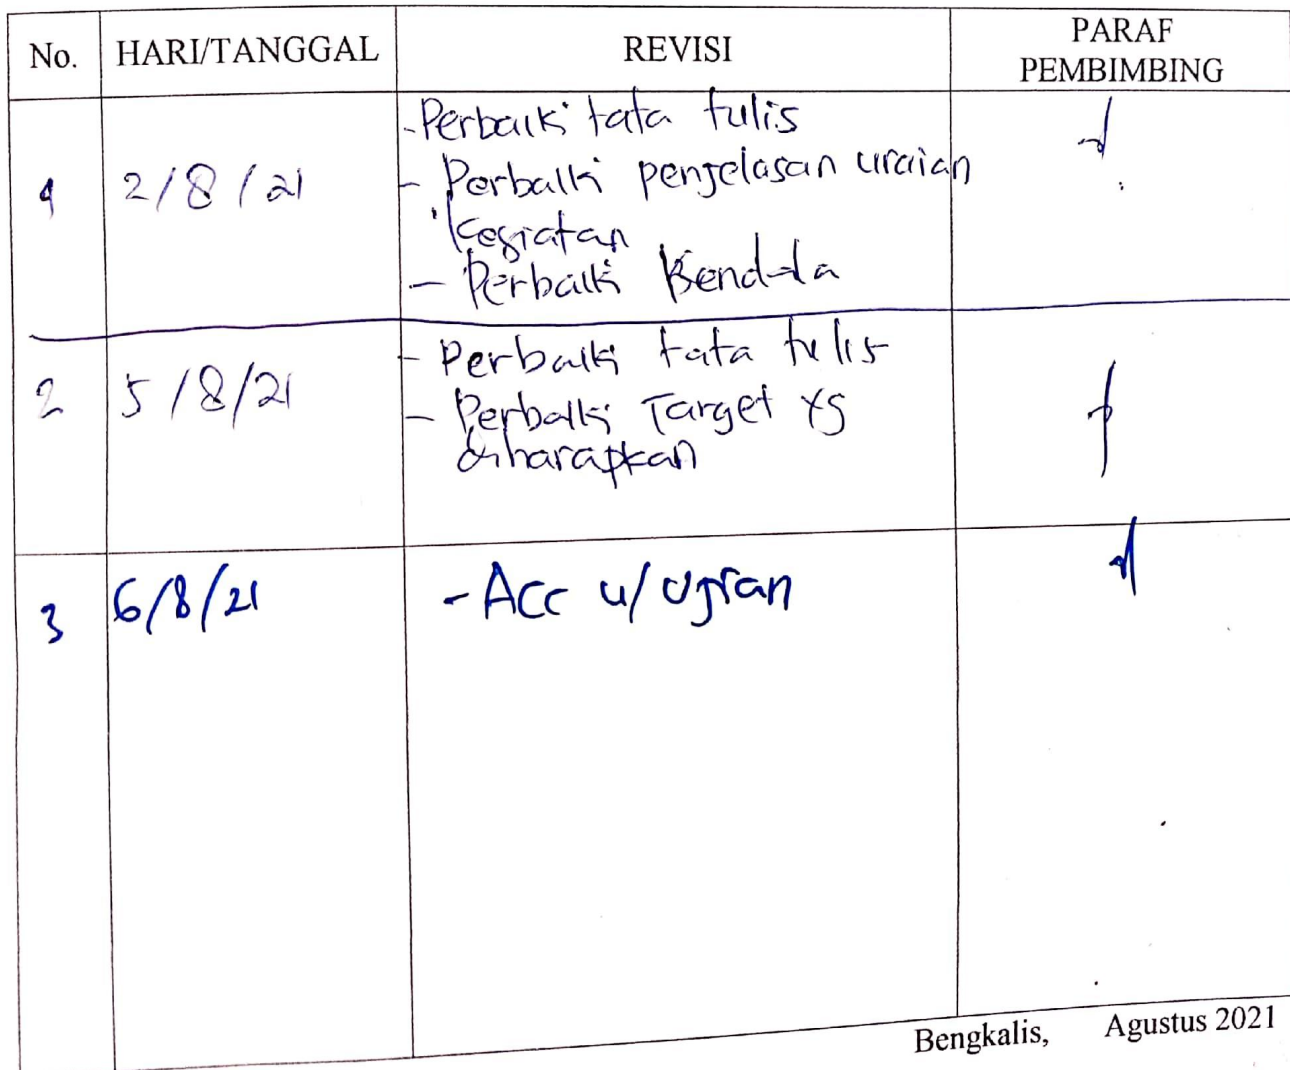 No. HARI/TANGGAL REVISI PARAF
PEMBIMBING
1 2/8/21 - Perbaiki tata tulis
- Perbaiki penjelasan uraian
kegiatan
- Perbaiki Kendala
2 5/8/21 - Perbaiki tata tulis
- Perbaiki Target yg
diharapkan
3 6/8/21 - Acc u/ Ujian
Bengkalis, Agustus 2021